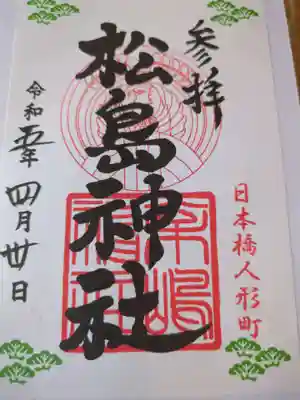 参拝
日本橋人形町
松島神社
令和五年四月廿日